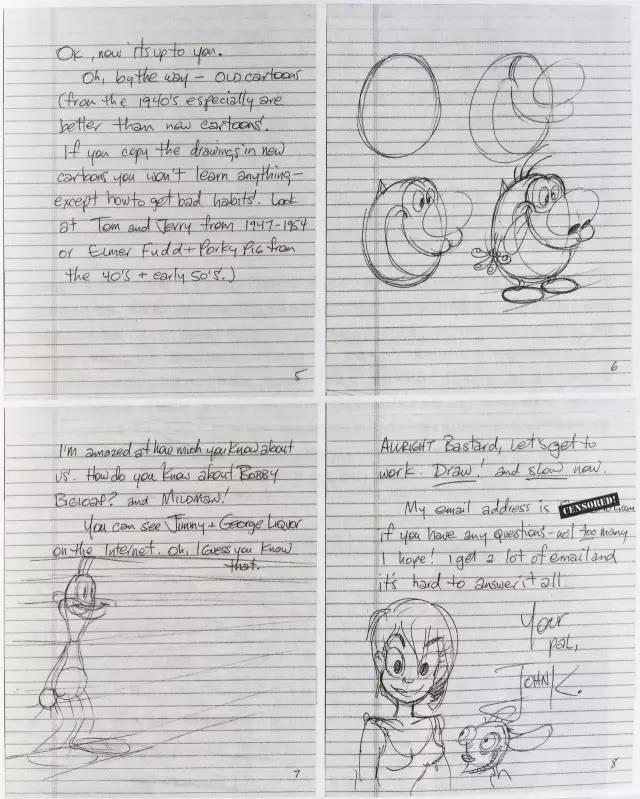 Ok, now it's up to you.
Oh, by the way – OLD cartoons
(from the 1940's especially are
better than new cartoons.
If you copy the drawings in new
cartoons you won't learn anything –
except how to get bad habits. Look
at Tom and Jerry from 1947-1954
or Elmer Fudd + Porky Pig from
the 40's + early 50's.)
5
6
I'm amazed at how much you know about
us. How do you know about BOBBY
BIGLOAF? and MILDMAN!
You can see Jimmy + George Liquor
on the Internet. Oh, I guess you know
that.
7
ALLRIGHT Bastard, Let's get to
work. Draw! and slow now.
My email address is CENSORED!
if you have any questions – not too many
I hope! I get a lot of email and
it's hard to answer it all.
Your
pal,
JOHN K.
8